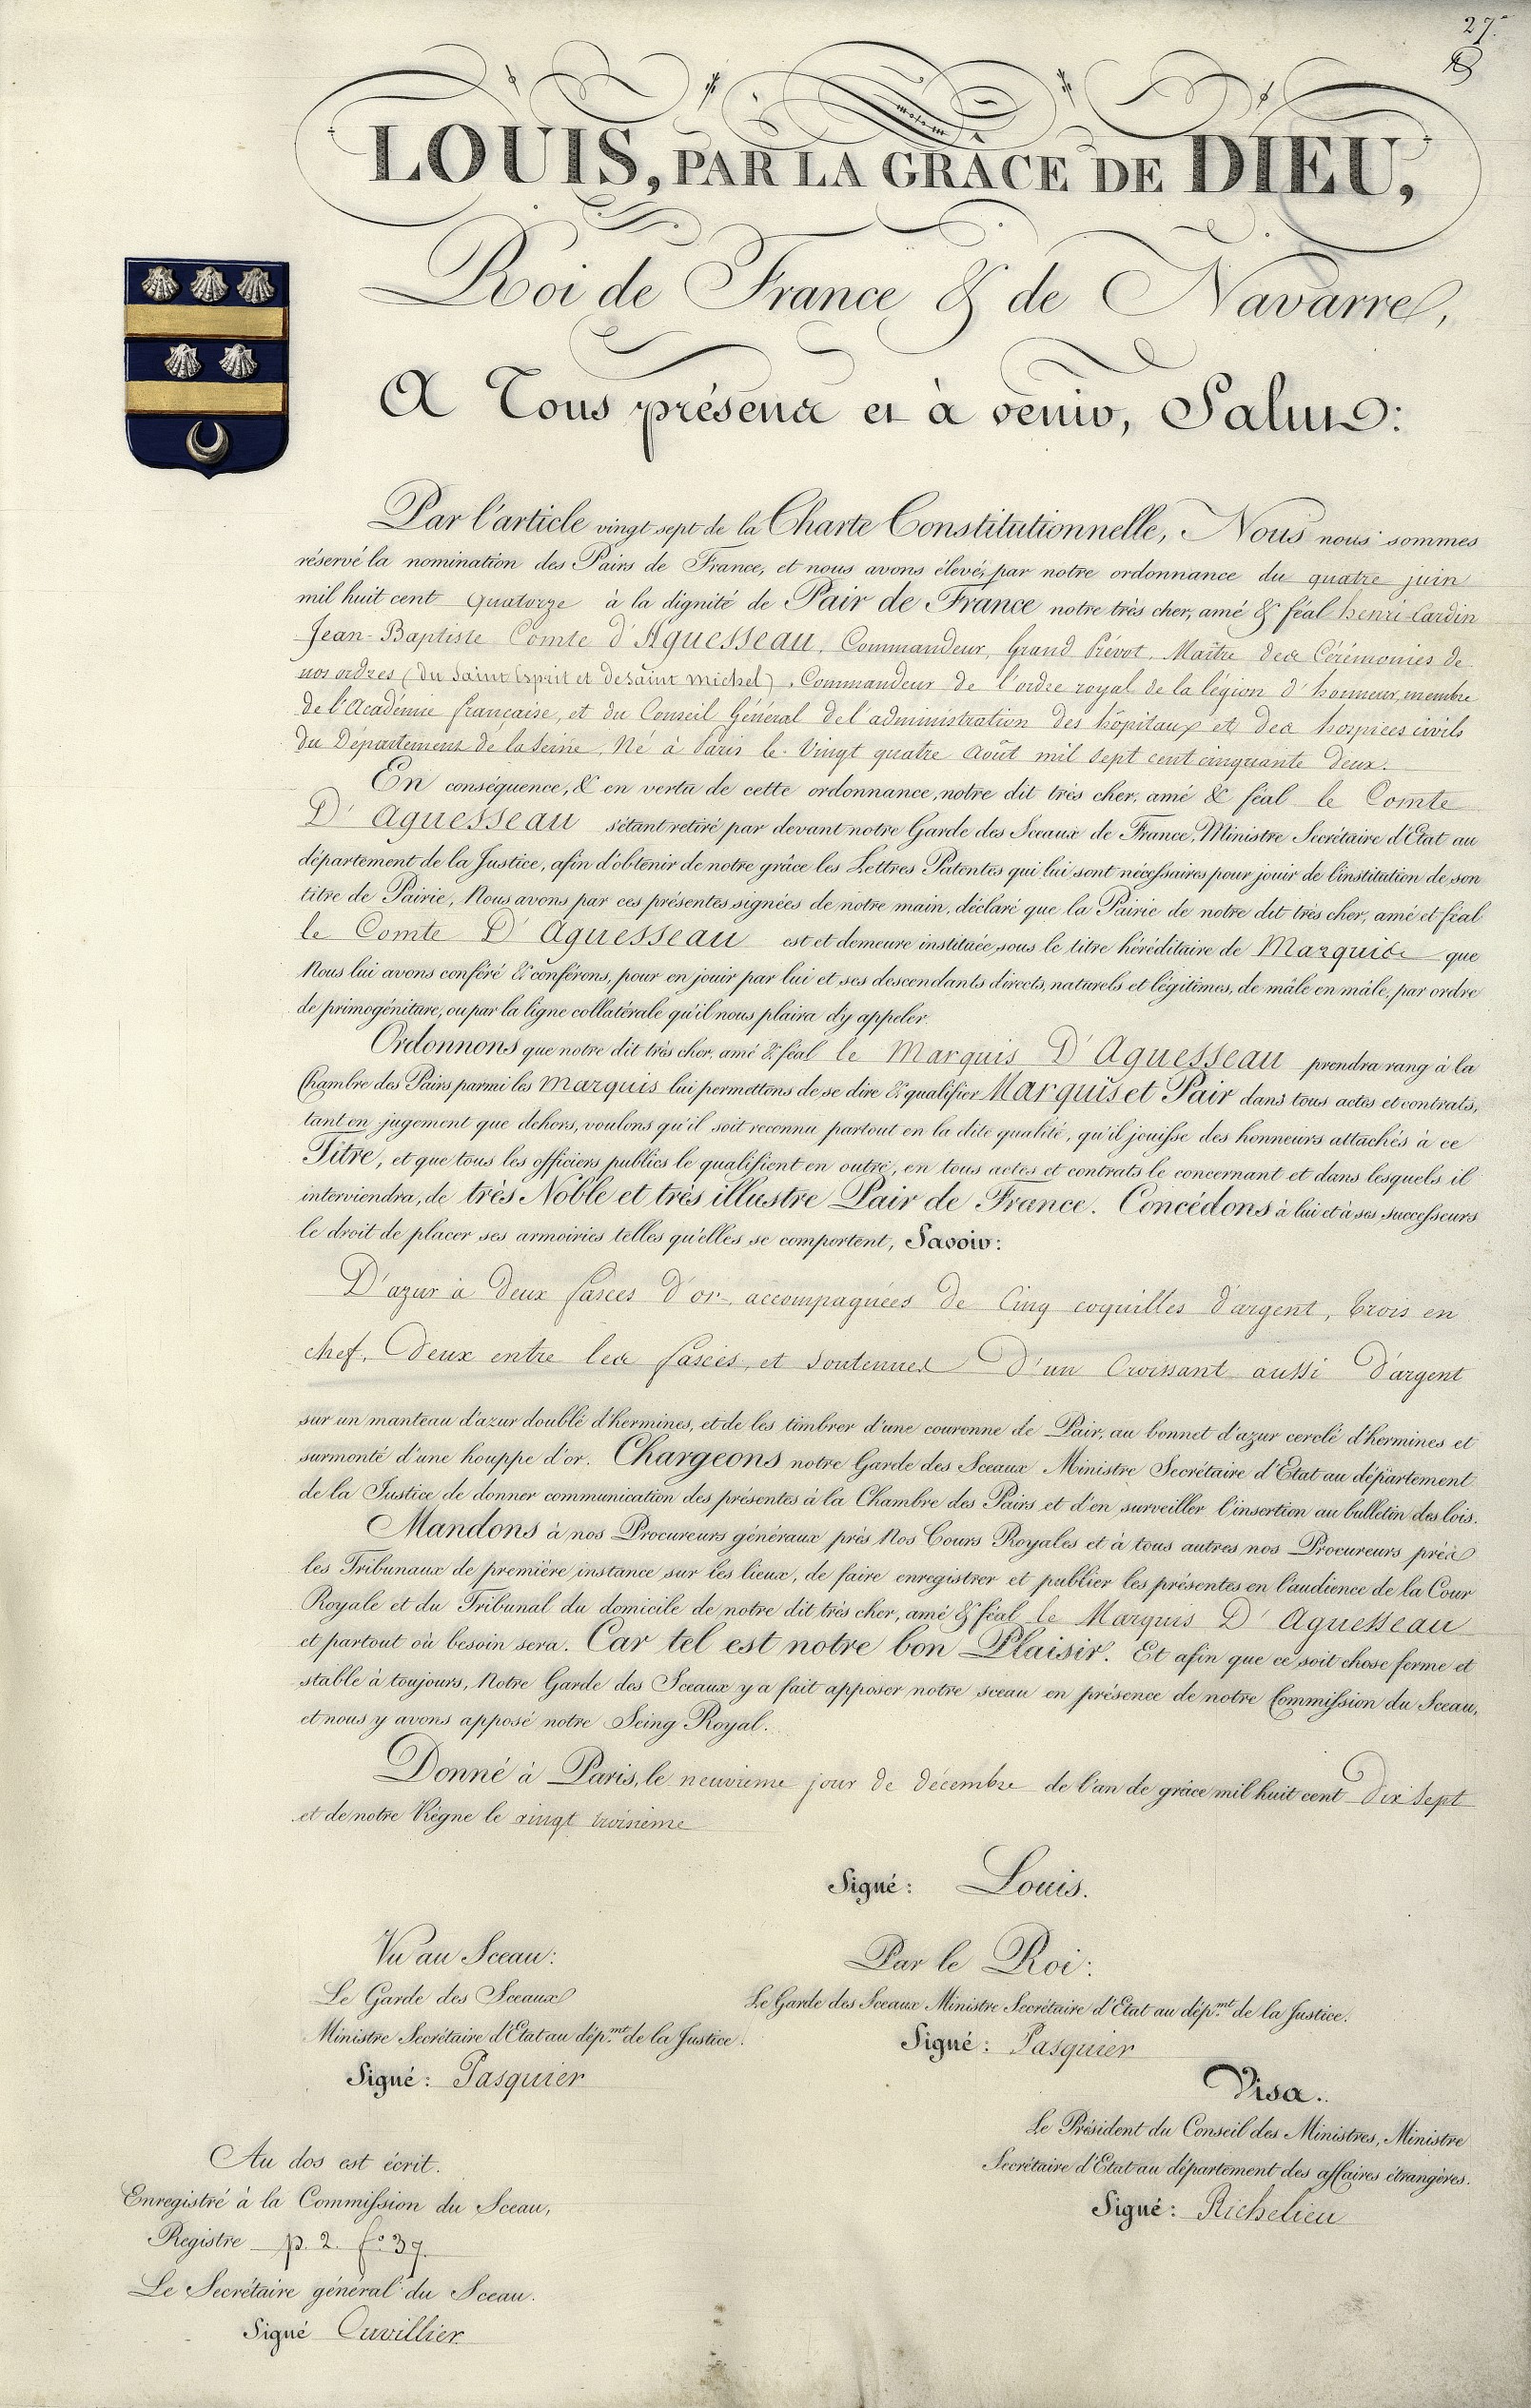 27.
LOUIS, PAR LA GRÂCE DE DIEU,
Roi de France & de Navarre,
A Tous présens et à venir, Salut:
Par l'article vingt sept de la Charte Constitutionnelle, Nous nous sommes
réservé la nomination des Pairs de France, et nous avons élevé, par notre ordonnance du quatre juin
mil huit cent quatorze à la dignité de Pair de France notre très cher, amé & féal henri Cardin
Jean-Baptiste Comte d'Aguesseau, Commandeur, Grand Prévot, Maître des Cérémonies de
nos ordres (du Saint Esprit et de Saint Michel), Commandeur de l'ordre royal de la légion d'honneur, membre
de l'Académie française, et du Conseil Général de l'administration des hôpitaux et des hospices civils
du Département de la Seine, Né à Paris le Vingt quatre Août mil sept cent cinquante deux.
En conséquence, & en vertu de cette ordonnance, notre dit très cher, amé & féal le Comte
D'Aguesseau s'étant retiré par devant notre Garde des Sceaux de France, Ministre Secrétaire d'Etat au
département de la Justice, afin d'obtenir de notre grâce les Lettres Patentes qui lui sont nécessaires pour jouir de l'institution de son
titre de Pairie, Nous avons par ces présentes signées de notre main, déclaré que la Pairie de notre dit très cher, amé et féal
le Comte D'Aguesseau est et demeure instituée sous le titre héréditaire de Marquis que
Nous lui avons conféré & conférons, pour en jouir par lui et ses descendants directs, naturels et légitimes, de mâle en mâle, par ordre
de primogéniture, ou par la ligne collatérale qu'il nous plaira d'y appeler.
Ordonnons que notre dit très cher, amé & féal le Marquis D'Aguesseau prendra rang à la
Chambre des Pairs parmi les Marquis lui permettons de se dire & qualifier Marquis et Pair dans tous actes et contrats,
tant en jugement que dehors, voulons qu'il soit reconnu partout en la dite qualité, qu'il jouisse des honneurs attachés à ce
Titre, et que tous les officiers publics le qualifient en outre, en tous actes et contrats le concernant et dans lesquels il
interviendra, de très Noble et très illustre Pair de France. Concédons à lui et à ses successeurs
le droit de placer ses armoiries telles qu'elles se comportent, Savoir:
D'azur à deux fasces d'or, accompagnées de Cinq coquilles d'argent, trois en
chef, deux entre les fasces, et soutenues d'un Croissant aussi d'argent
sur un manteau d'azur doublé d'hermines, et de les timbrer d'une couronne de Pair, au bonnet d'azur cerclé d'hermines et
surmonté d'une houppe d'or. Chargeons notre Garde des Sceaux Ministre Secrétaire d'Etat au département
de la Justice de donner communication des présentes à la Chambre des Pairs et d'en surveiller l'insertion au bulletin des lois.
Mandons à nos Procureurs généraux près Nos Cours Royales et à tous autres nos Procureurs près
les Tribunaux de première instance sur les lieux, de faire enregistrer et publier les présentes en l'audience de la Cour
Royale et du Tribunal du domicile de notre dit très cher, amé & féal le Marquis D'Aguesseau
et partout où besoin sera. Car tel est notre bon Plaisir. Et afin que ce soit chose ferme et
stable à toujours, Notre Garde des Sceaux y a fait apposer notre sceau en présence de notre Commission du Sceau,
et nous y avons apposé notre Seing Royal.
Donné à Paris, le neuvieme jour de décembre de l'an de grâce mil huit cent dix Sept
et de notre Règne le vingt troisieme
Signé: Louis.
Vu au Sceau:
Le Garde des Sceaux
Ministre Secrétaire d'Etat au dép.mt de la Justice.
Signé: Pasquier
Par le Roi:
Le Garde des Sceaux Ministre Secrétaire d'Etat au dép.mt de la Justice.
Signé: Pasquier
Visa.
Le Président du Conseil des Ministres, Ministre
Secrétaire d'Etat au département des affaires étrangères.
Signé: Richelieu
Au dos est écrit.
Enregistré à la Commission du Sceau,
Registre p. 2. fo 37.
Le Secrétaire général du Sceau.
Signé Cuvillier